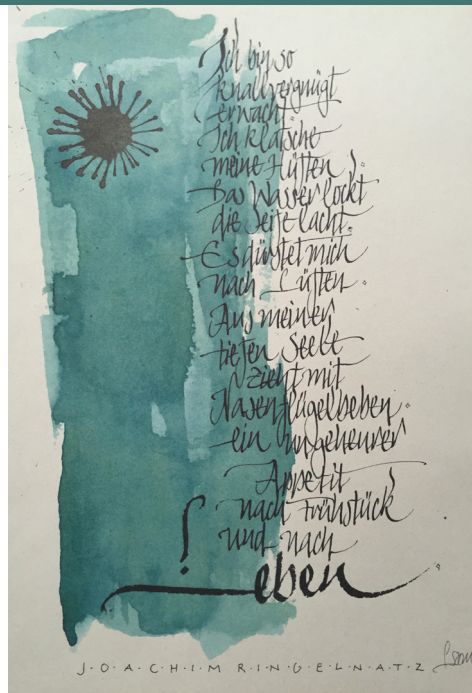 Ich bin so
knallvergnügt
erwacht.
Ich klatsche
meine Hüften.
Das Wasser lockt
die Seife lacht.
Es dürstet mich
nach Lüften.
Aus meiner
tiefen Seele
zieht mit
Nasenflügelbeben
ein ungeheurer
Appetit
nach Frühstück
und nach
Leben
JOACHIM RINGELNATZ